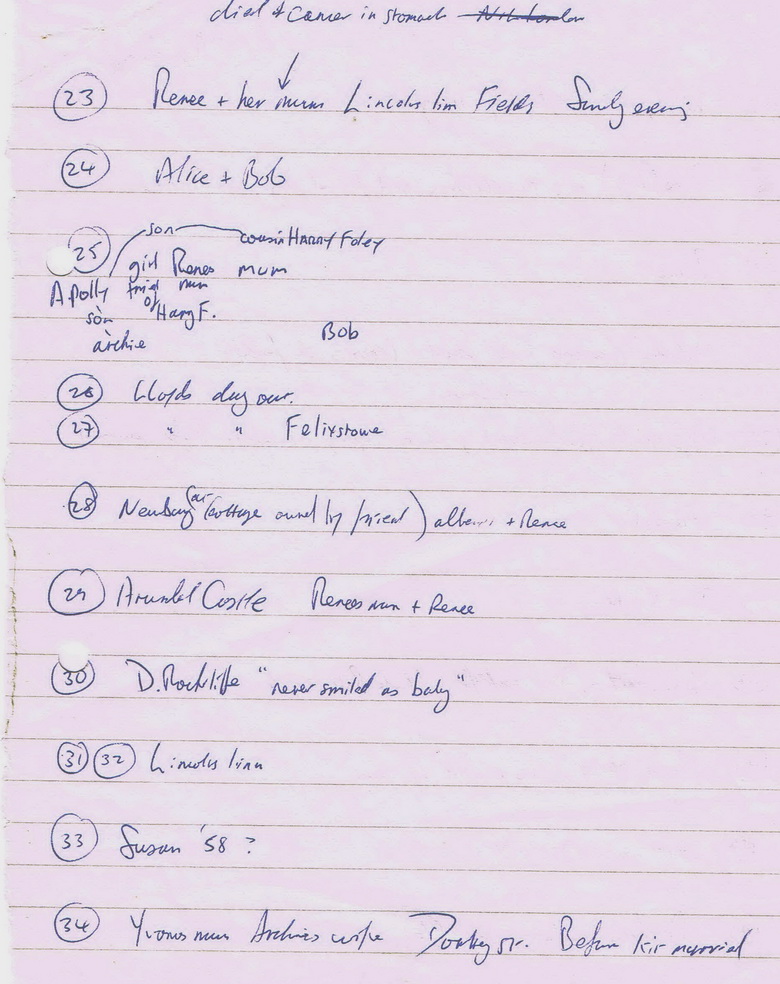 died of Cancer in stomach
23 Renee + her mum Lincolns Inn Fields Sunday evening
24 Alice + Bob
25 son cousin HARRY Foley
girl Renes mum
A Polly friend mum
of Harry F.
son
archie Bob
26 Lloyds day out.
27 " " Felixstowe
28 Newbury (cottage owned by friend) + Renee
29 Arundel Castle Renees mum + Renee
30 D. Rockliffe "never smiled as baby"
31 32 Lincolns Inn
33 Susan '58 ?
34 Yvonnes mum Archies wife Before married